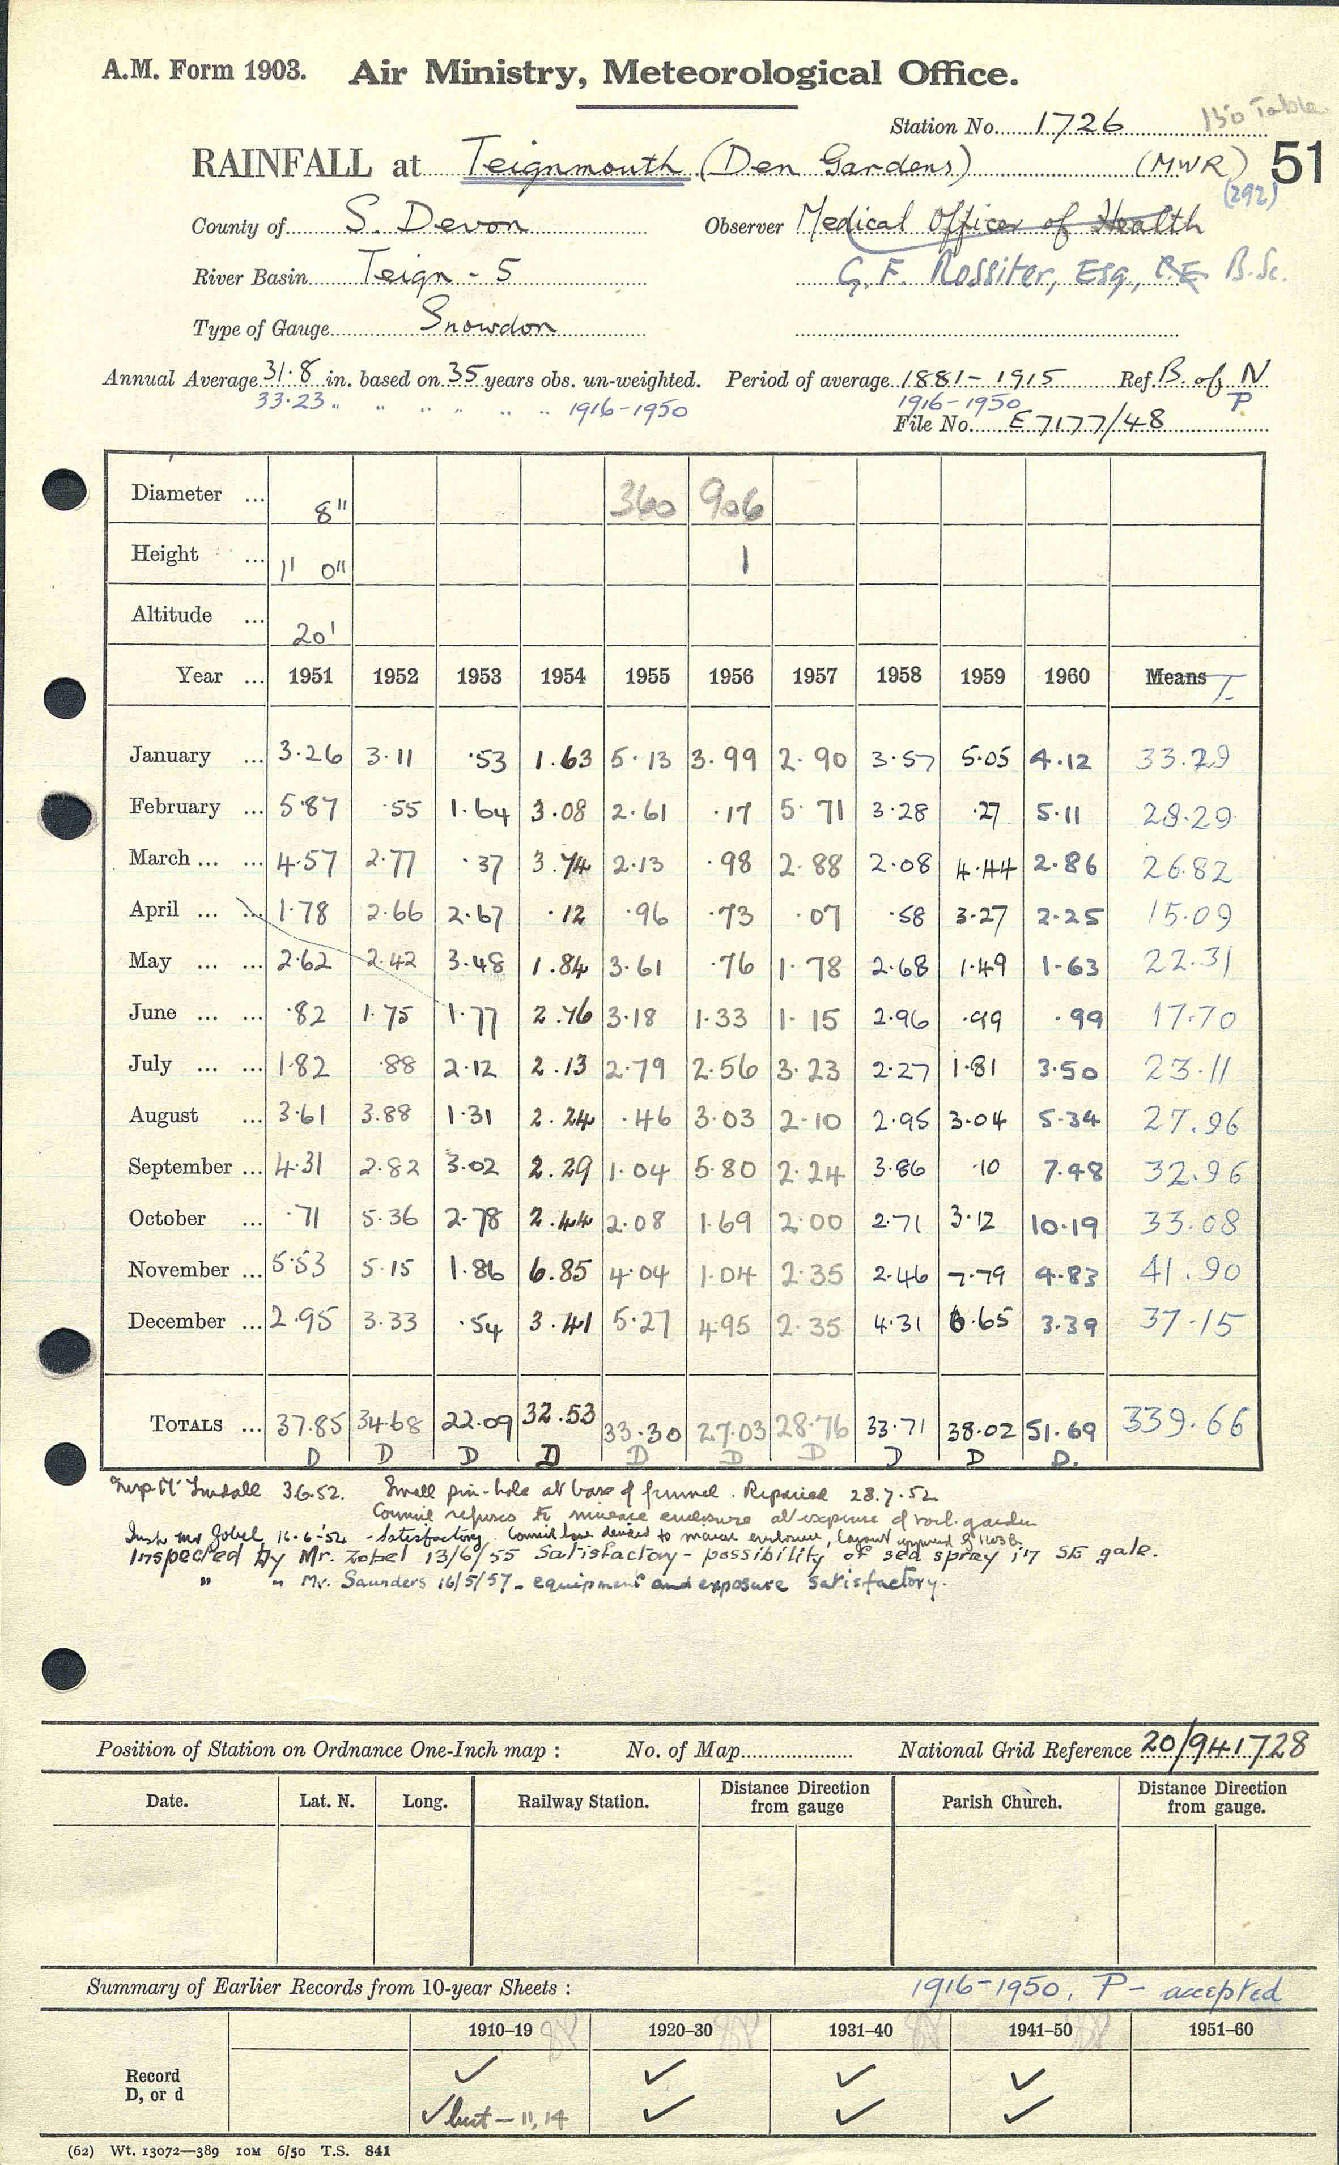 A.M. Form 1903. Air Ministry, Meteorological Office.
150 Table
Station No. 1726
RAINFALL at Teignmouth (Den Gardens) (MWR) 51
(292)
County of S. Devon Observer Medical Officer of Health
River Basin Teign - 5 G. F. Rossiter, Esq., B.Sc.
Type of Gauge Snowdon
Annual Average 31.8 in. based on 35 years obs. un-weighted. Period of average 1881-1915 Ref. B. of N
33.23 " " " " " " 1916-1950 1916-1950 P
File No. E7177/48
Diameter ... 8" 360 906
Height ... 1' 0" 1
Altitude ... 20'
Year ... 1951 1952 1953 1954 1955 1956 1957 1958 1959 1960 Means T.
January ... 3.26 3.11 .53 1.63 5.13 3.99 2.90 3.57 5.05 4.12 33.29
February ... 5.87 .55 1.64 3.08 2.61 .17 5.71 3.28 .27 5.11 28.29
March ... ... 4.57 2.77 .37 3.74 2.13 .98 2.88 2.08 4.44 2.86 26.82
April ... ... 1.78 2.66 2.67 .12 .96 .73 .07 .58 3.27 2.25 15.09
May ... ... 2.62 2.42 3.48 1.84 3.61 .76 1.78 2.68 1.49 1.63 22.31
June ... ... .82 1.75 1.77 2.76 3.18 1.33 1.15 2.96 .99 .99 17.70
July ... ... 1.82 .88 2.12 2.13 2.79 2.56 3.23 2.27 1.81 3.50 23.11
August ... 3.61 3.88 1.31 2.24 .46 3.03 2.10 2.95 3.04 5.34 27.96
September ... 4.31 2.82 3.02 2.29 1.04 5.80 2.24 3.86 .10 7.48 32.96
October ... .71 5.36 2.78 2.44 2.08 1.69 2.00 2.71 3.12 10.19 33.08
November ... 5.53 5.15 1.86 6.85 4.04 1.04 2.35 2.46 7.79 4.83 41.90
December ... 2.95 3.33 .54 3.41 5.27 4.95 2.35 4.31 6.65 3.39 37.15
TOTALS ... 37.85 34.68 22.09 32.53 33.30 27.03 28.76 33.71 38.02 51.69 339.66
D D D D D D D D D D.
Insp Mr Tindall 3.6.52. Small pin-hole at base of funnel. Repaired 28.7.52
Council refuses to increase enclosure at expense of rock garden
Insp. Mr Zobel 16.6.54 - Satisfactory. Council have decided to move enclosure, layout approved
Inspected by Mr. Zobel 13/6/55 Satisfactory - possibility of sea spray in SE gale.
" " Mr. Saunders 16/5/57 - equipment and exposure satisfactory.
Position of Station on Ordnance One-Inch map : No. of Map National Grid Reference 20/941728
Date. Lat. N. Long. Railway Station. Distance Direction from gauge Parish Church. Distance Direction from gauge.
Summary of Earlier Records from 10-year Sheets : 1916-1950. P - accepted
1910–19 1920–30 1931–40 1941–50 1951–60
Record ✓ ✓ ✓ ✓
D, or d ✓ but - 11, 14 ✓ ✓ ✓
(62) Wt. 13072—389 10M 6/50 T.S. 841